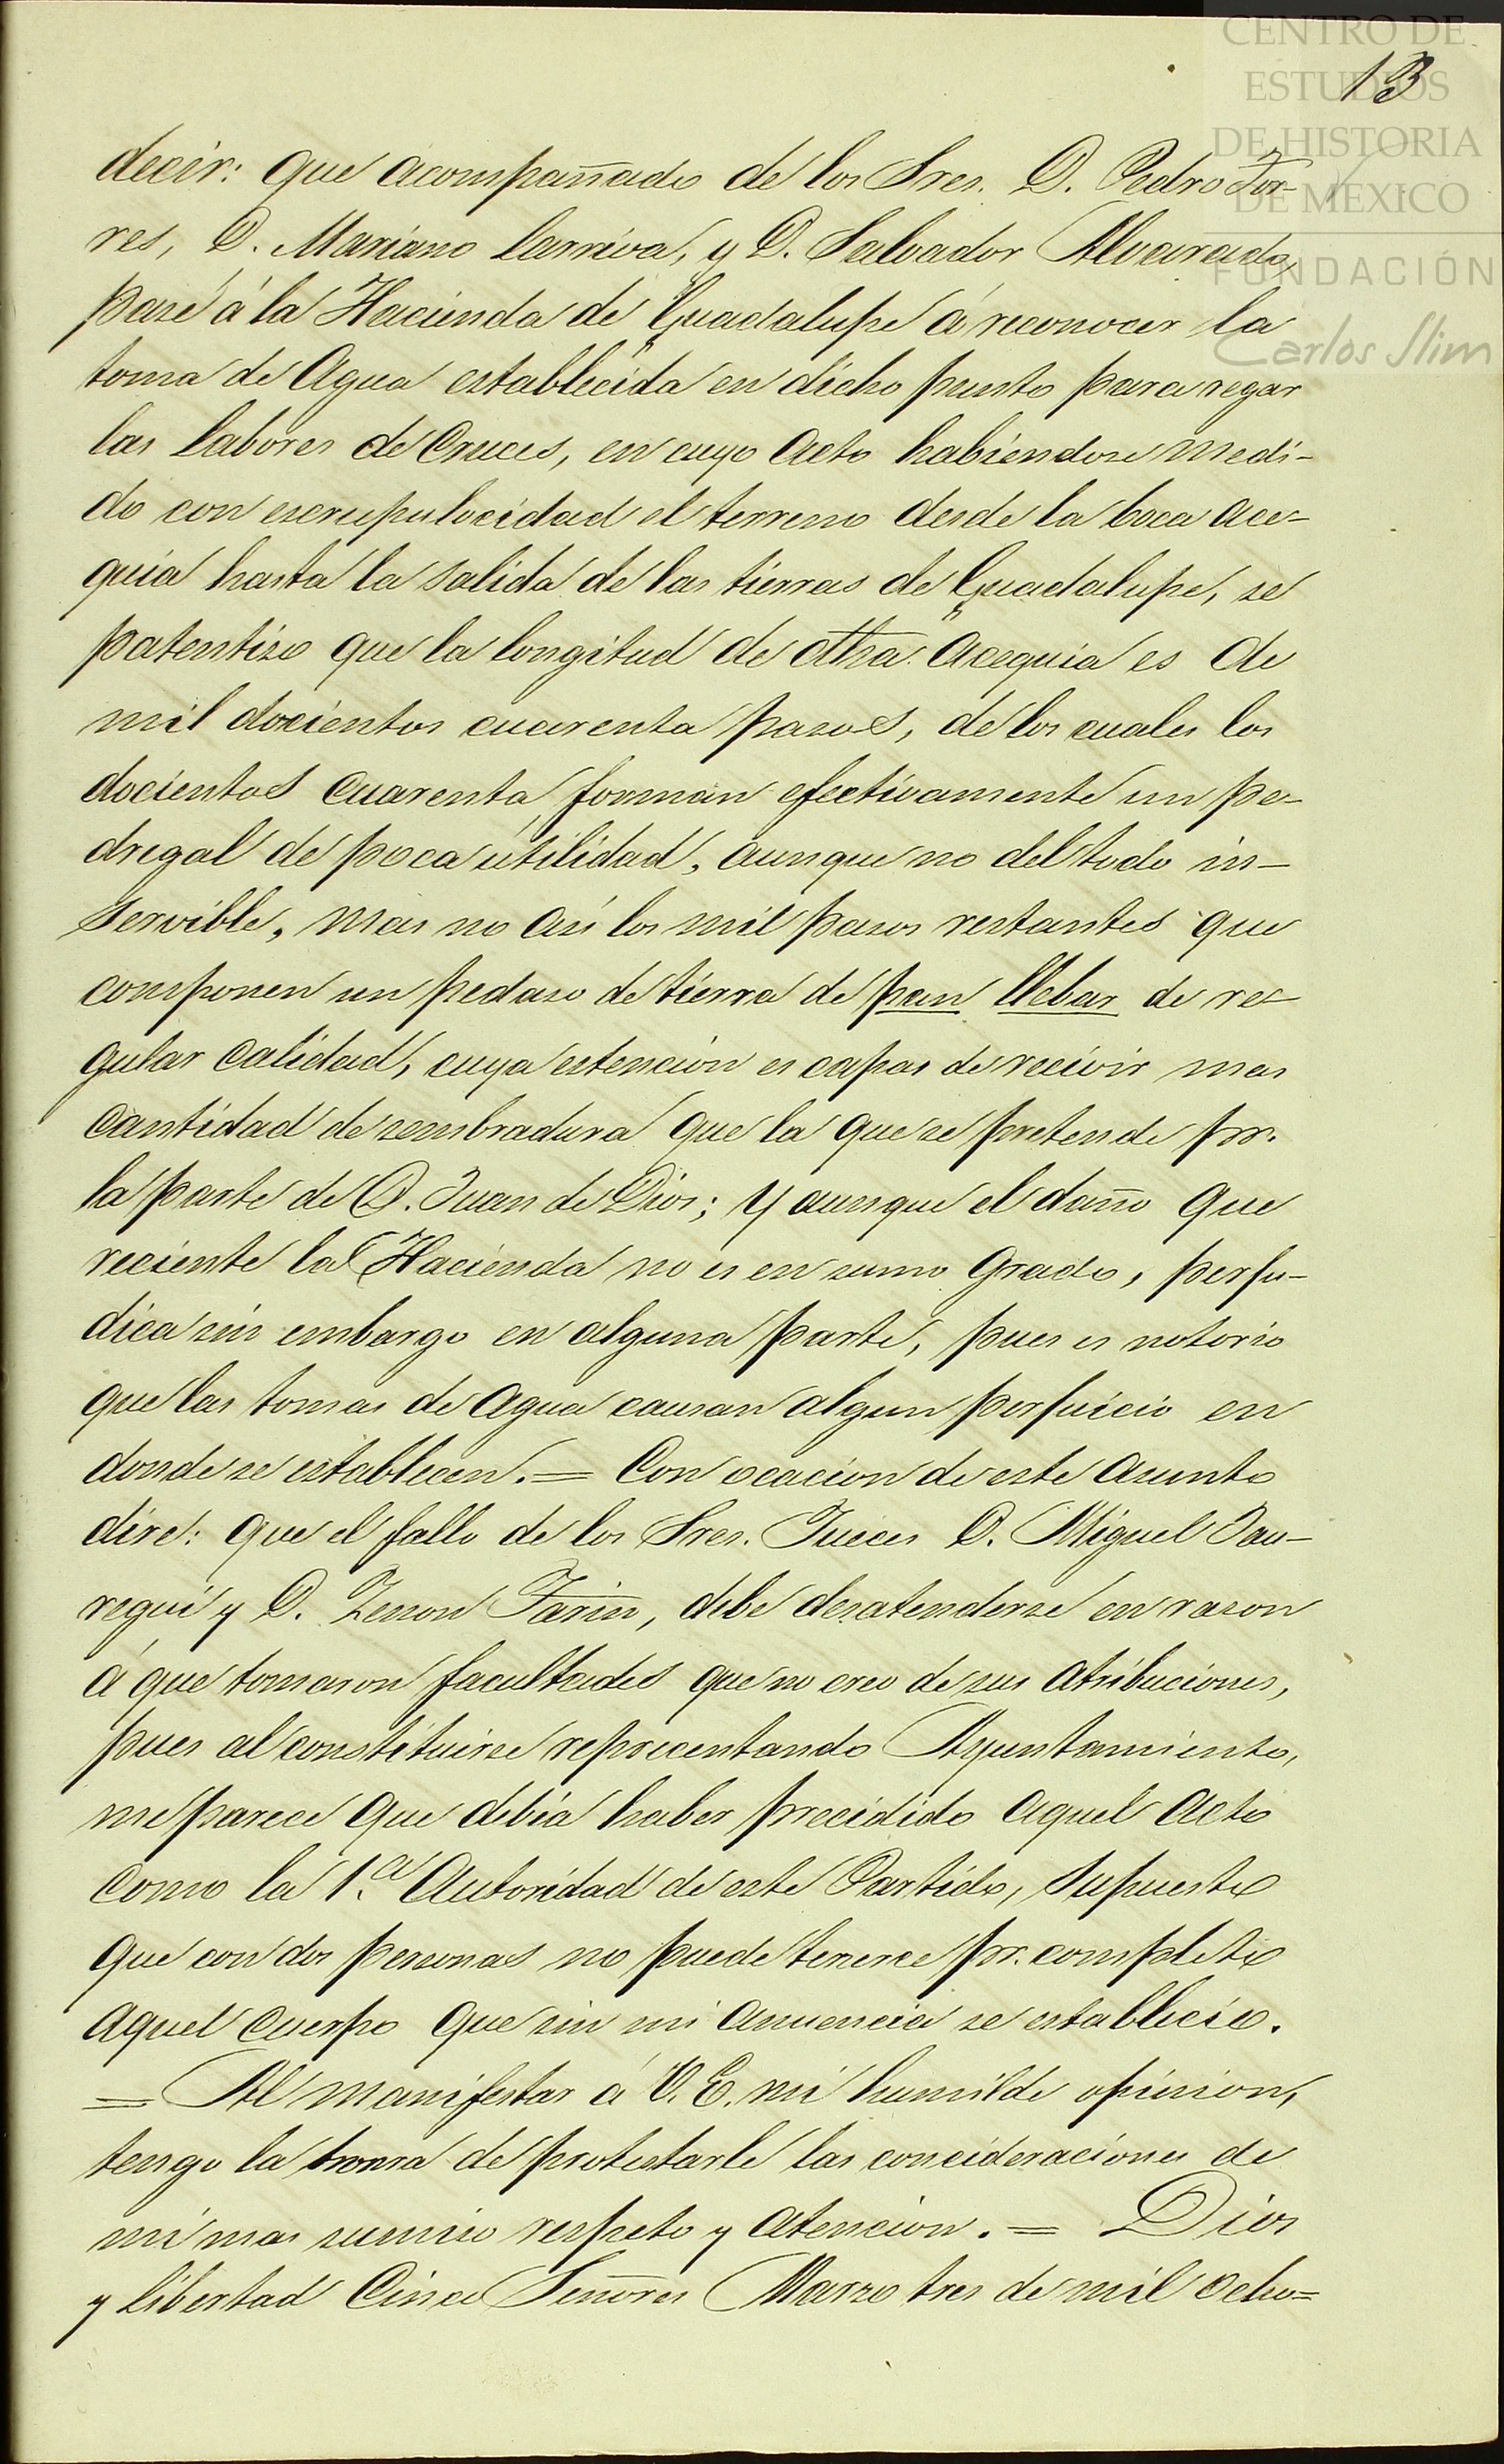 CENTRO DE
ESTUDIOS
DE HISTORIA
DE MÉXICO
FUNDACIÓN
Carlos Slim
13
decir: que acompañado de los Sres. D. Pedro Tor-
res, D. Mariano Larriva, y D. Salvador Alvarado,
pasé á la Hacienda de Guadalupe á reconocer la
toma de Agua establecida en dicho punto para regar
las labores de Cruces, en cuyo acto habiendose medi-
do con escrupulocidad el terreno desde la boca ace-
quia hasta la salida de las tierras de Guadalupe, se
patentizo que la longitud de dha. acequia es de
mil docientos cuarenta pasos, de los cuales los
docientos cuarenta, forman efectivamente un pe-
dregal de poca útilidad, aunque no del todo in-
servible, mas no así los mil pasos restantes que
componen un pedaso de tierra de pan llebar de re-
gular calidad, cuya estencion es capas de recivir mas
cantidad de sembradura que la que se pretende pr.
la parte de D. Juan de Dios; y aunque el daño que
reciente la Hacienda no es en sumo grado, perju-
dica sin embargo en alguna parte, pues es notorio
que las tomas de agua causan algun perjuicio en
donde se establecen.= Con ocacion de este asunto
diré: que el fallo de los Sres. Jueces D. Miguel Jau-
regui y D. Zenon Farin, debe desatenderse en razon
á que tomaron facultades que no creo de sus atribuciones,
pues al constituirse reprecentando Ayuntamiento,
me parece que debia haber precidido aquel acto
como la 1.a Autoridad de este Partido, supuesto
que con dos personas no puede tenerce pr. completo
aquel cuerpo que sin mi anuencia se establecio.
= Al manifestar á V. E. mi humilde opinion,
tengo la honra de protestarle las concideraciones de
mi mas sumiso respeto y atencion. = Dios
y libertad Cinco Señores Marzo tres de mil ocho=